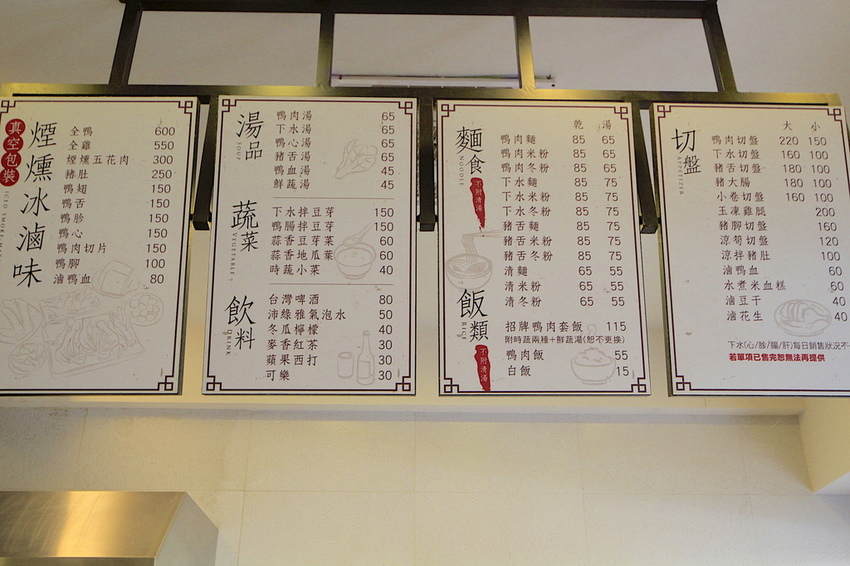 真空包裝
煙燻冰滷味
全鴨 600
全雞 550
煙燻五花肉 300
豬肚 250
鴨翅 150
鴨舌 150
鴨胗 150
鴨心 150
鴨肉切片 150
鴨腳 100
滷鴨血 80
湯品
SOUP
鴨肉湯 65
下水湯 65
鴨心湯 65
豬舌湯 65
鴨血湯 45
鮮蔬湯 45
蔬菜
VEGETABLE
下水拌豆芽 150
鴨腸拌豆芽 150
蒜香豆芽菜 60
蒜香地瓜葉 60
時蔬小菜 40
飲料
DRINK
台灣啤酒 80
沛綠雅氣泡水 50
冬瓜檸檬 40
麥香紅茶 30
蘋果西打 30
可樂 30
麵食
NOODLE
不附清湯
乾 湯
鴨肉麵 85 65
鴨肉米粉 85 65
鴨肉冬粉 85 65
下水麵 85 75
下水米粉 85 75
下水冬粉 85 75
豬舌麵 85 75
豬舌米粉 85 75
豬舌冬粉 85 75
清麵 65 55
清米粉 65 55
清冬粉 65 55
飯類
RICE
不附清湯
招牌鴨肉套飯 115
附時蔬兩種+鮮蔬湯(恕不更換)
鴨肉飯 55
白飯 15
切盤
APPETIZER
大 小
鴨肉切盤 220 150
下水切盤 160 100
豬舌切盤 180 100
豬大腸 180 100
小卷切盤 160 100
玉凍雞腿 200
豬腳切盤 160
涼筍切盤 120
涼拌豬肚 160
滷鴨血 60
水煮米血糕 60
滷豆干 40
滷花生 40
下水(心/胗/腸/肝)每日銷售狀況不
若單項已售完恕無法再提供